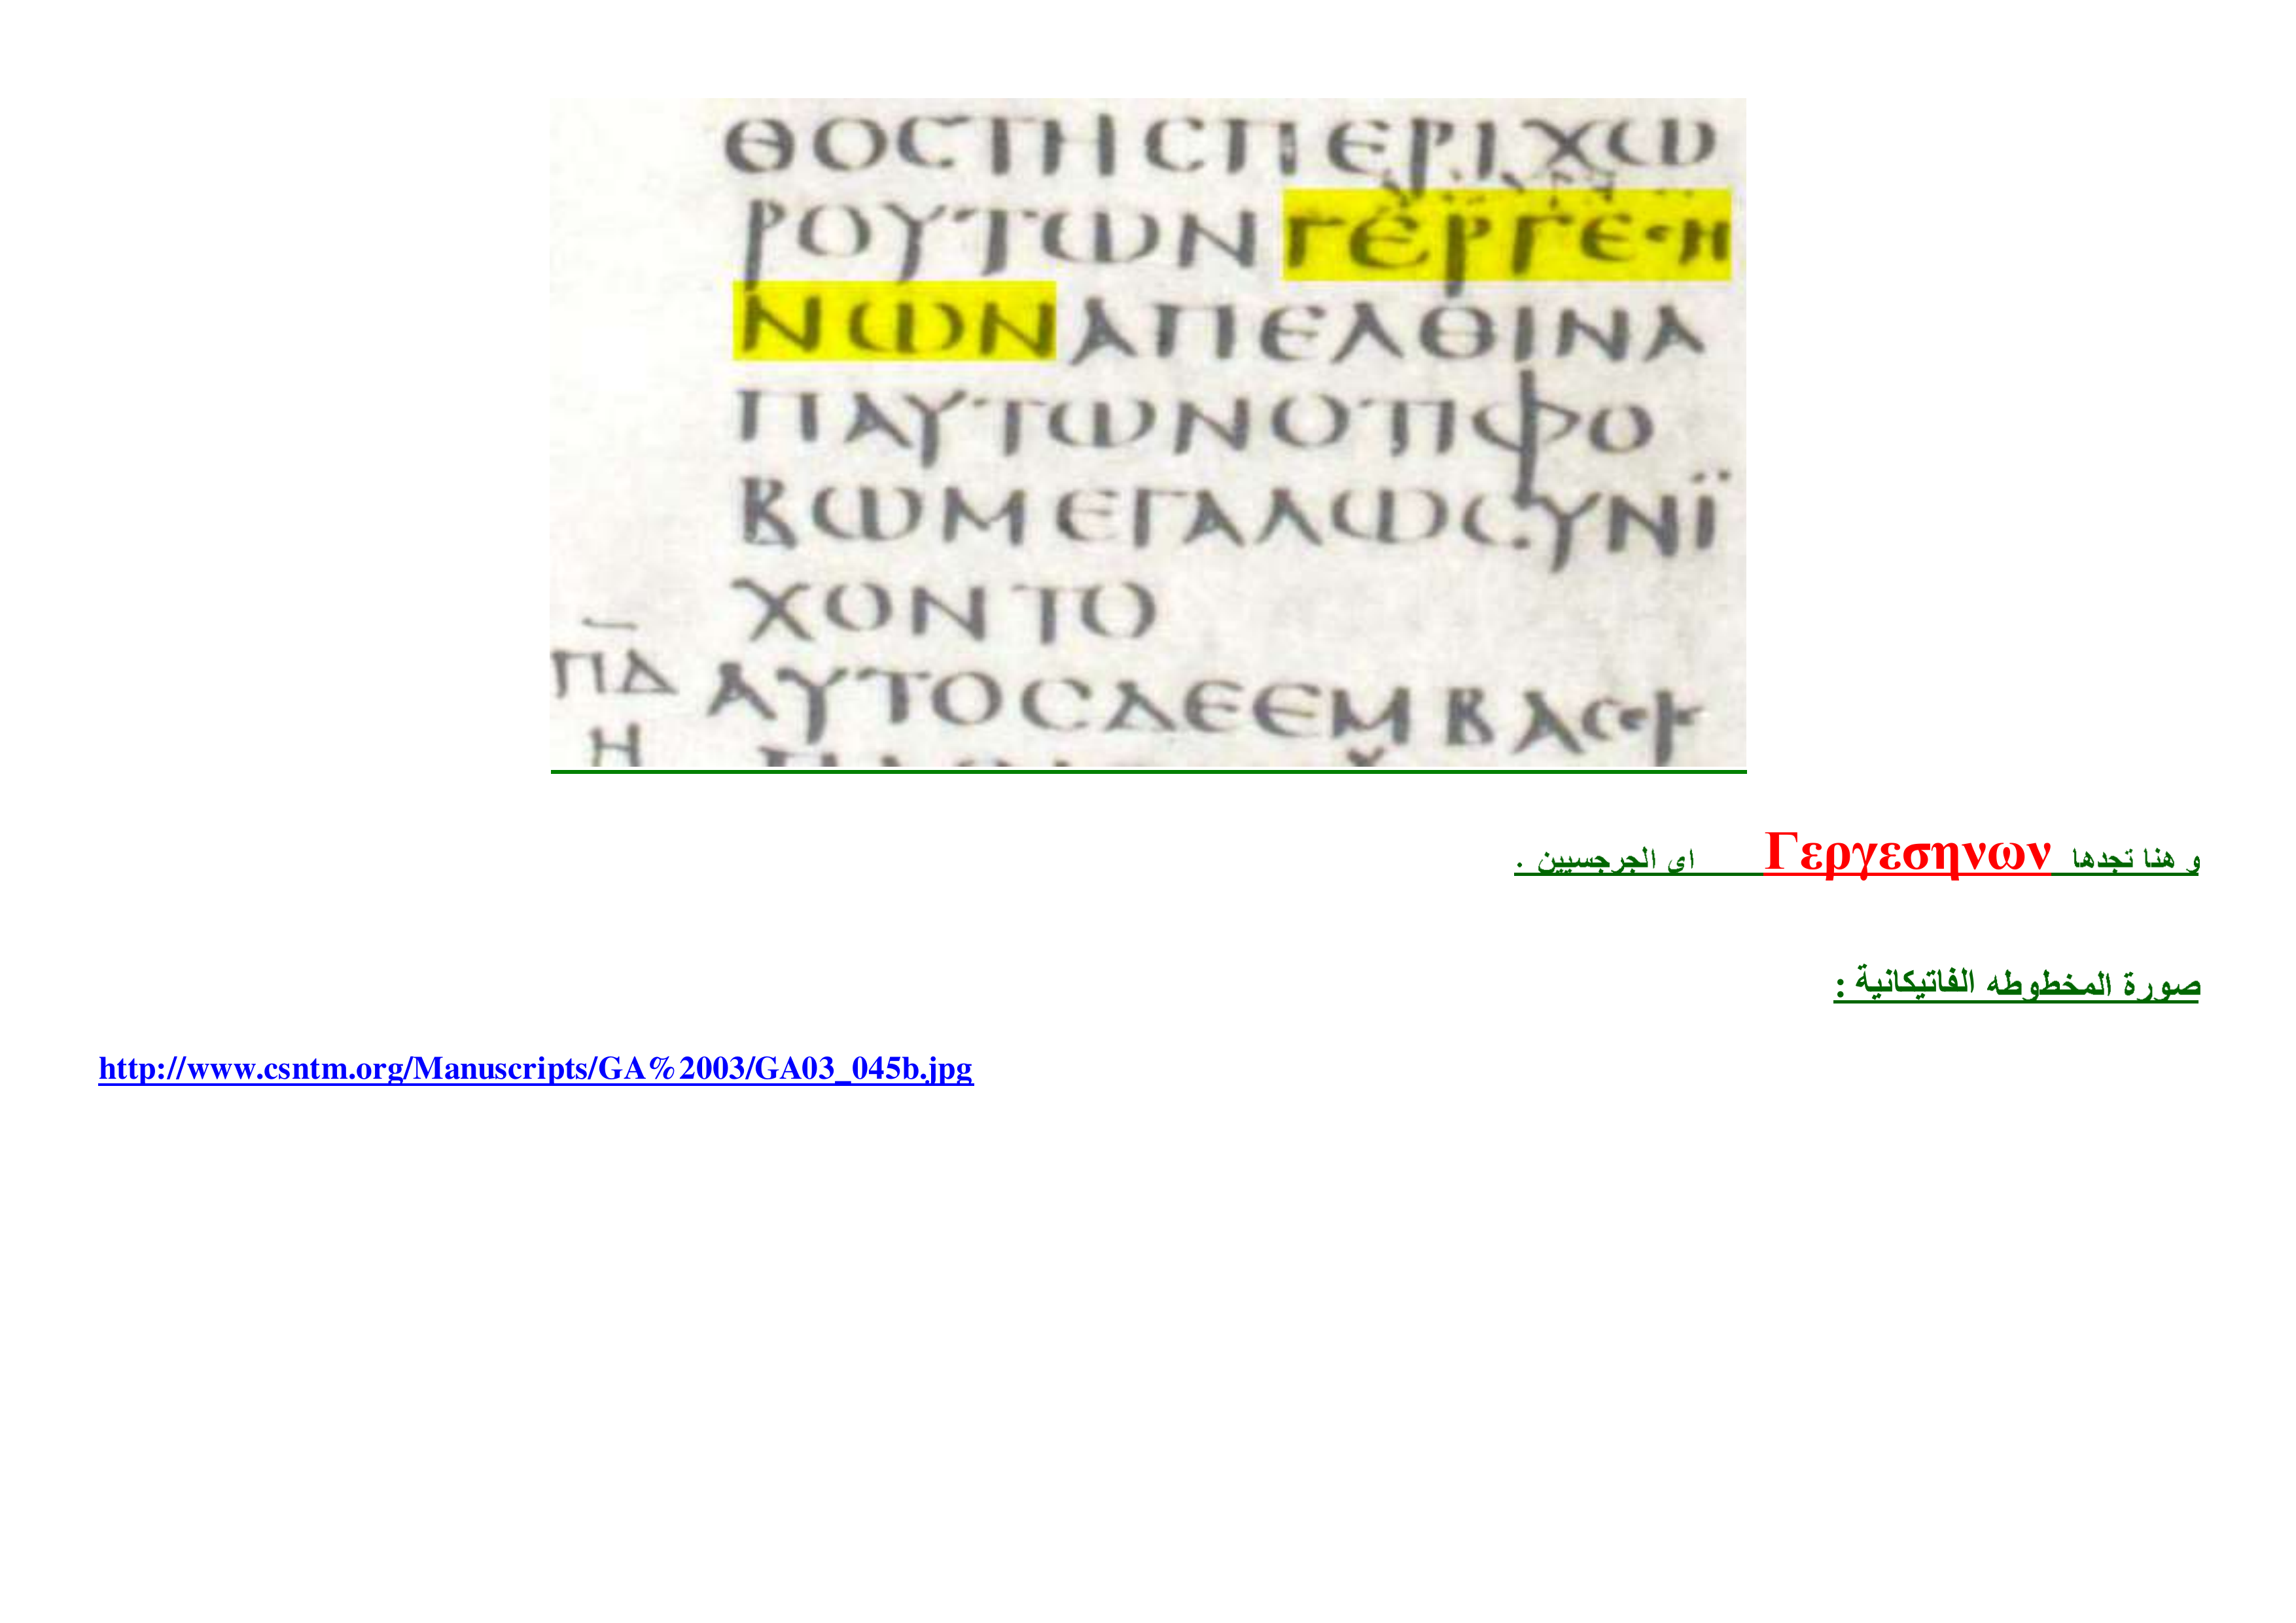 ΘΟCΤΗCΠΕΡΙΧΩ
ΡΟΥΤΩΝΓΕΡΓΕCΗ
ΝΩΝΑΠΕΛΘΙΝΑ
ΠΑΥΤΩΝΟΤΙΦΟ
ΒΩΜΕΓΑΛΩCΥΝΪ
ΧΟΝΤΟ
ΠΔ ΑΥΤΟCΔΕΕΜΒΑC
Η
و هنا تجدها Γεργεσηνων اى الجرجسيين .
صورة المخطوطه الفاتيكانية :
http://www.csntm.org/Manuscripts/GA%2003/GA03_045b.jpg